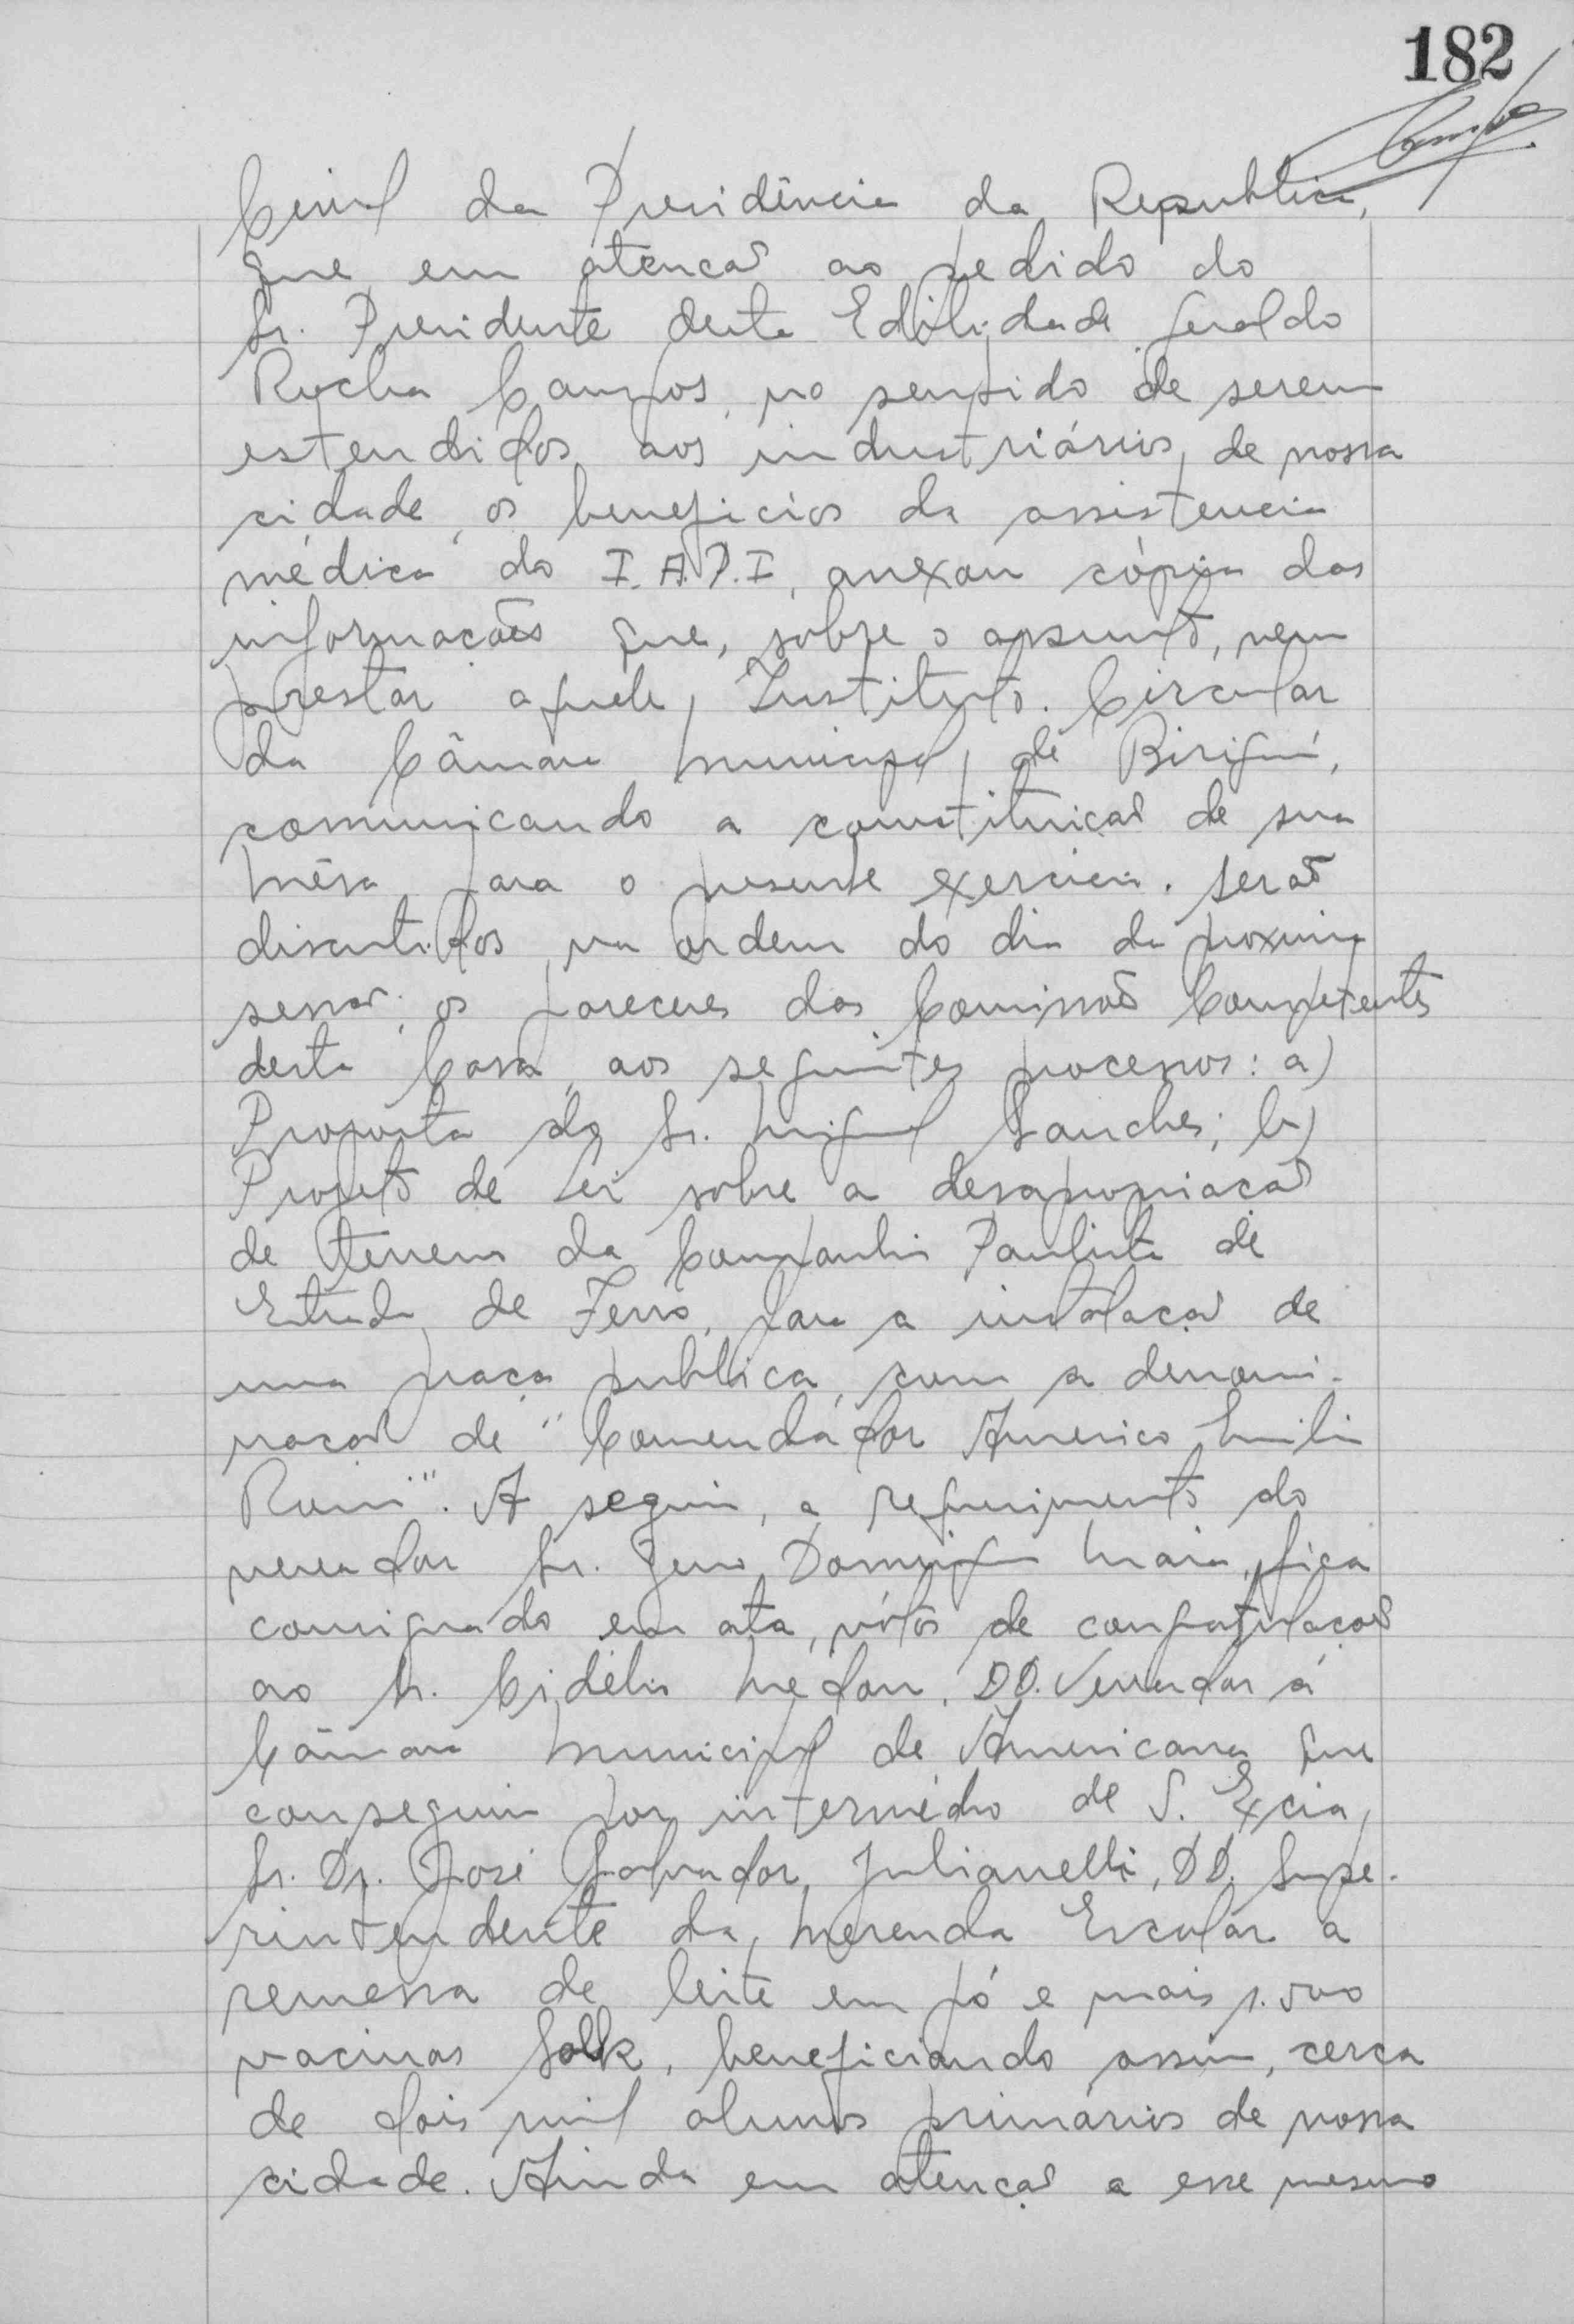 182
Civil da Presidência da Republica,
que em atencaõ ao pedido do
Sr. Presidente desta Edilidade Geraldo
Rocha Campos, no sentido de serem
estendidos aos industriários, de nossa
cidade, os beneficios da assistencia
médica do I.A.P.I, anexou cópia das
informacões que, sobre o assunto, vem
prestar aquele Instituto. Circular
da Câmara Municipal de Biriguí,
comunicando a constituicaõ de sua
Mêsa para o presente exercicio. Seraõ
discutidos na ordem do dia da proxima
sessaõ, os pareceres das Comissoẽs Competentes
desta Casa, aos seguintes processos: a)
Proposta do Sr. Miguel Sanches; b)
Projeto de Lei sobre a desapropriacaõ
de terreno da Companhia Paulista de
Estrada de Ferro, para a instalaçaõ de
uma praça publica, com a denomi-
naçaõ de "Comendador Americo Emilio
Romi". A seguir, a requerimento do
vereador Sr. Zeno Domingos Maia, fica
consignado em ata, vótos de congratulaçoẽs
ao Sr. Cidélio Medon. DD. Vereador á
Câmara Municipal de Americana que
conseguiu por intermédio de S. Excia,
Sr. Dr. José Salvador Julianelli, DD. Supe-
rintendente da Merenda Escolar a
remessa de leite em pó e mais 1.500
vacinas Salk, beneficiando assim, cerca
de dois mil alunos primários de nossa
cidade. Ainda em atençaõ a esse mesmo